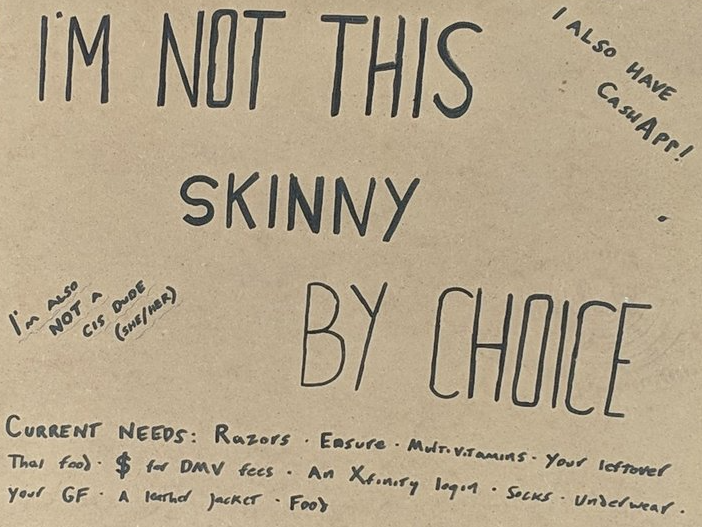 I'M NOT THIS
SKINNY
BY CHOICE
I ALSO HAVE
CASHAPP!
I'm ALSO
NOT A
CIS DUDE
(SHE/HER)
CURRENT NEEDS: Razors · Ensure · Multivitamins · Your leftover
Thai food · $ for DMV fees · An Xfinity login · Socks · Underwear ·
Your GF · A leather jacket · Food